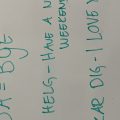 = BYE
HELG - HAVE A
WEEKEND
DIG - I LOVE